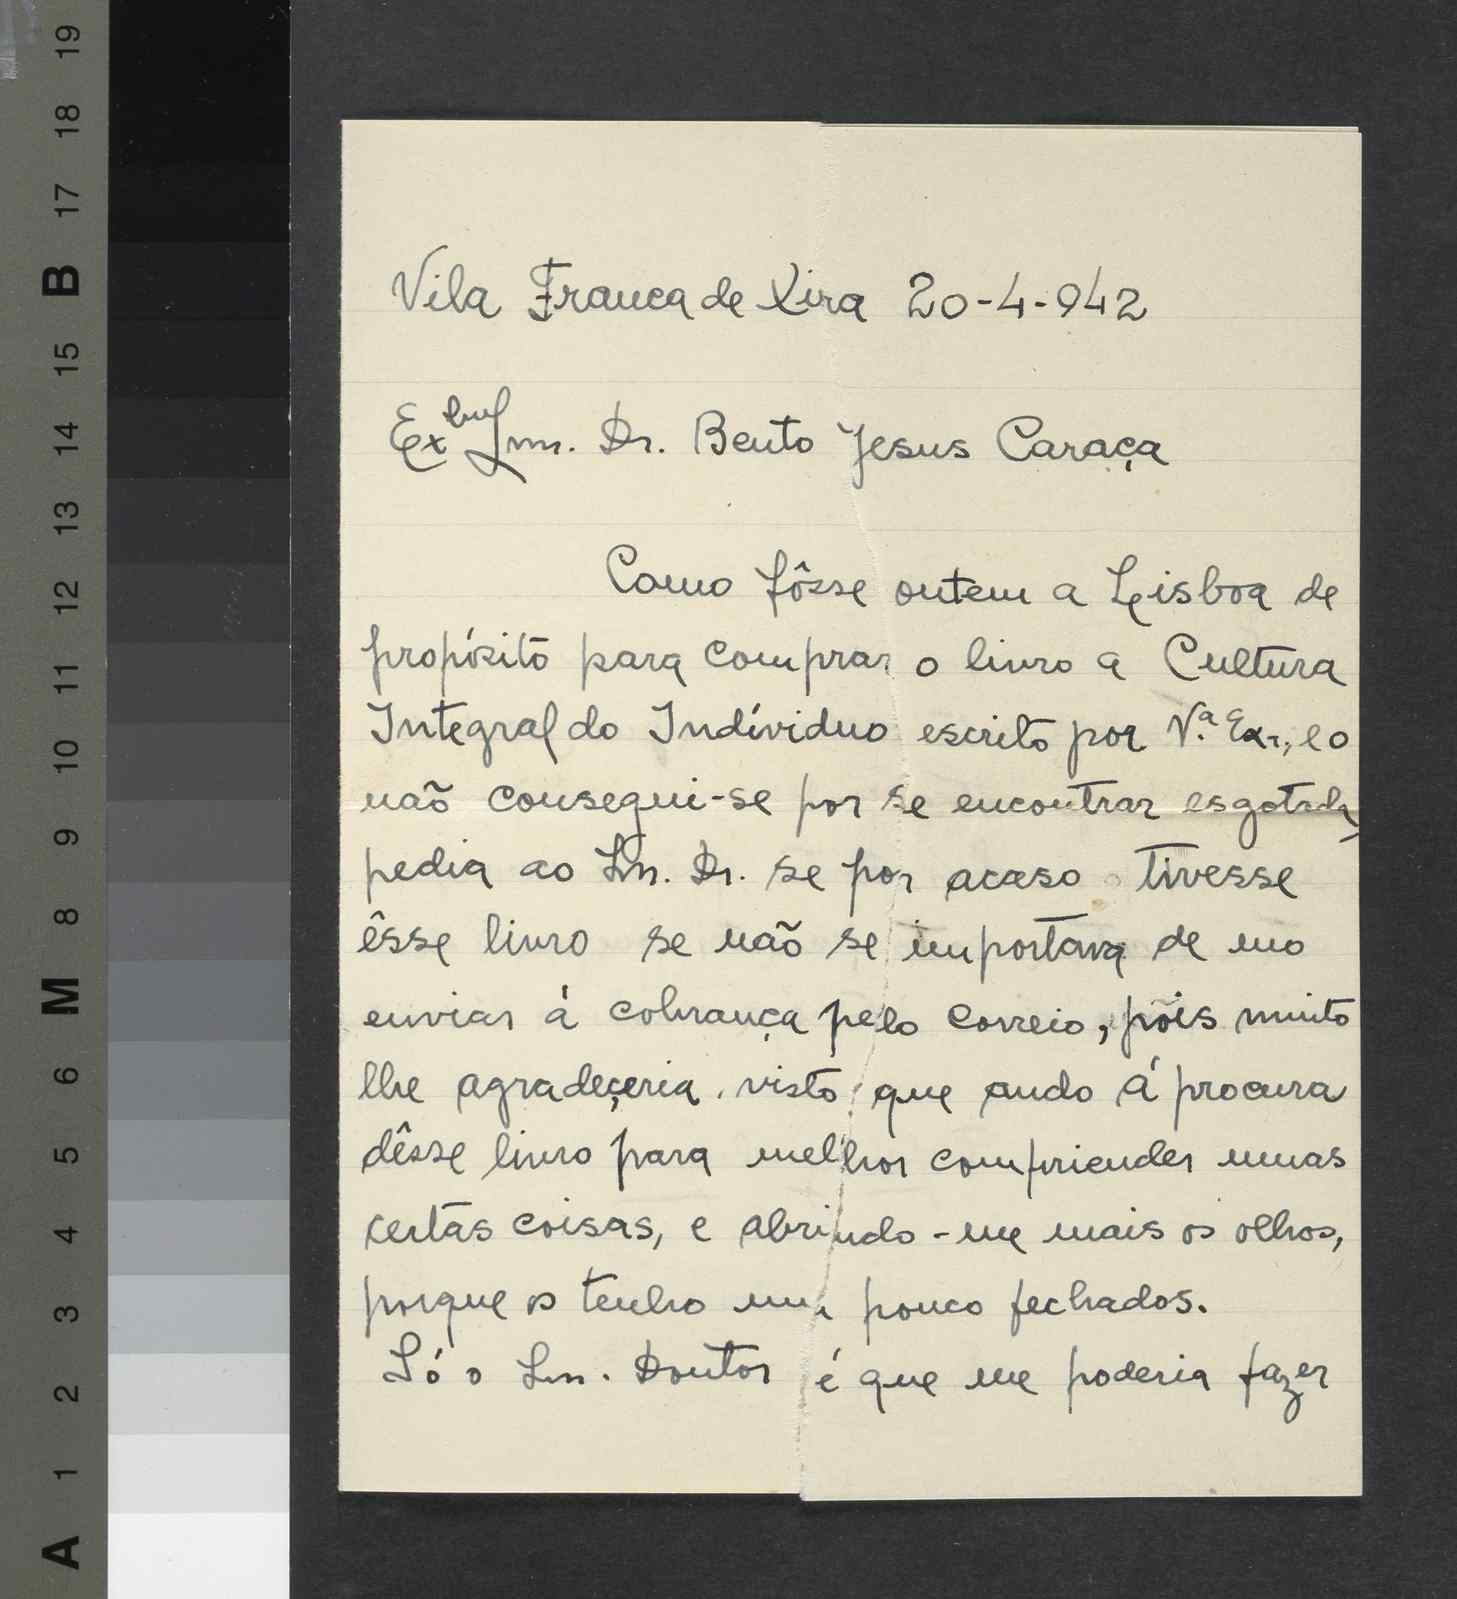 Vila Franca de Xira 20-4-942
Exmº Snr. Dr. Bento Jesus Caraça
Como fôsse ontem a Lisboa de
propósito para comprar o livro a Cultura
Integral do Indíviduo escrito por V.ª Exª, e o
não consegui-se por se encontrar esgotado,
pedia ao Sn. Dr. se por acaso tivesse
êsse livro se não se importava de mo
enviar á cobrança pelo correio, pois muito
lhe agradeçeria. visto que ando á procura
dêsse livro para melhor compriender umas
certas coisas, e abrindo-me mais os olhos,
porque os tenho um pouco fechados.
Só o Sn. Doutor é que me poderia fazer
A 1 2 3 4 5 6 M 8 9 10 11 12 13 14 15 B 17 18 19